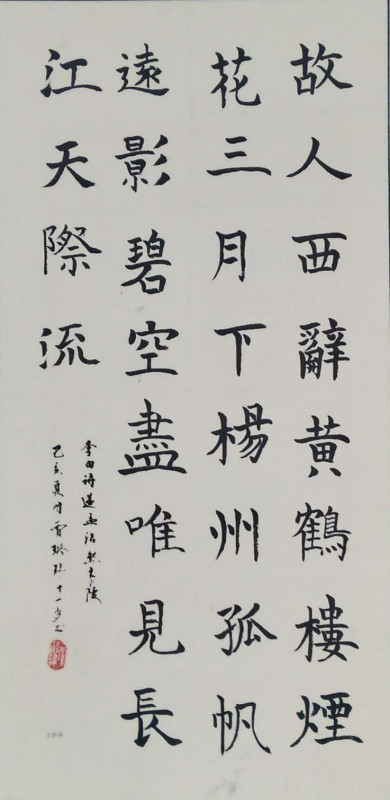 故人西辭黄鶴樓煙
花三月下楊州孤帆
遠影碧空盡唯見長
江天際流
李白诗送孟浩然之广陵
己亥夏月曾十一岁书